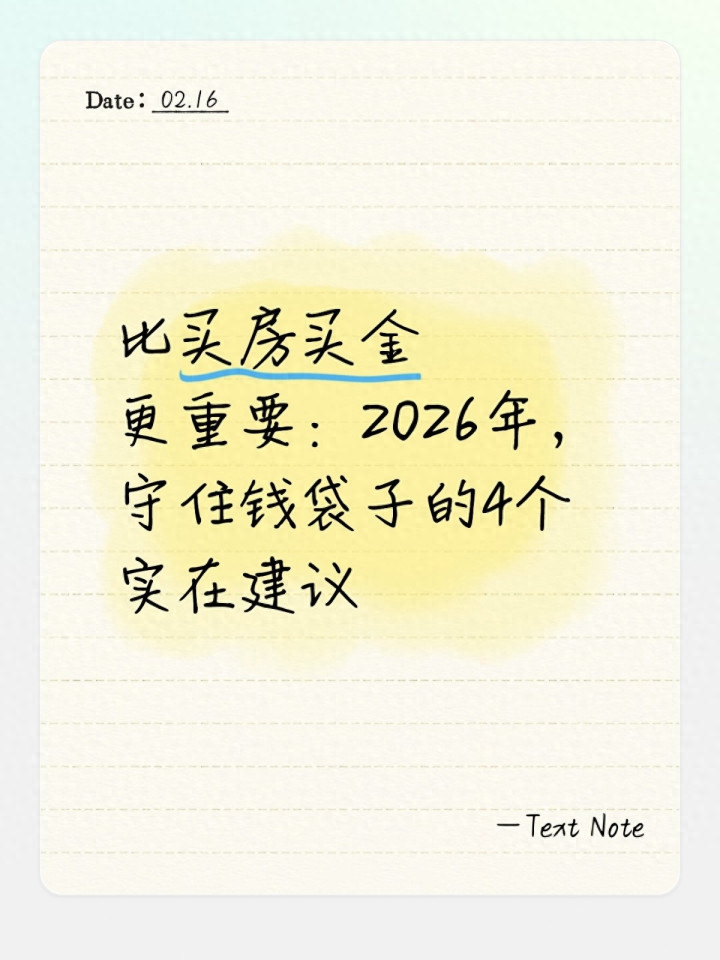 Date: 02.16
比买房买金
更重要：2026年，
守住钱袋子的4个
实在建议
—Text Note